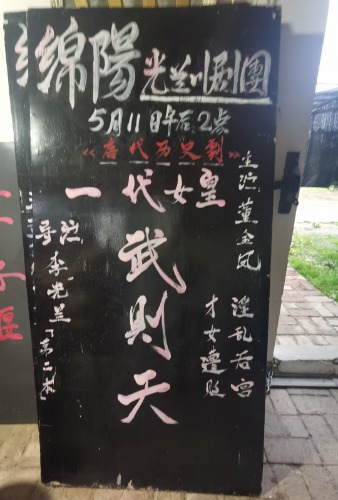 绵陽光兰川剧團
5月11日午后2点
《唐代历史剧》
一代女皇
武则天
主演董金凤
淫乱后宫
才女遭贬
导演李光兰「第二本」